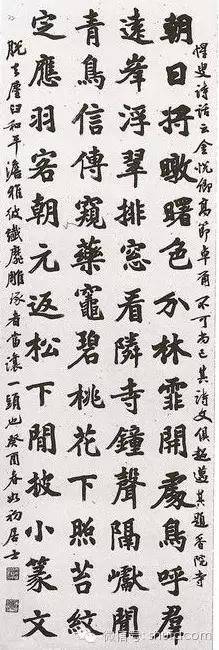 惺叟詩話云金悅卿高節卓爾不可尚已其詩文俱超邁其題香院寺
朝日將暾曙色分林霏開處鳥呼羣
遠峯浮翠排窓看隣寺鐘聲隔巘聞
青鳥信傳窺藥竈碧桃花下照苔紋
定應羽客朝元返松下閒披小篆文
脫去塵臼和平澹雅彼纖靡雕琢者當讓一頭也癸酉春如初居士
微信号: